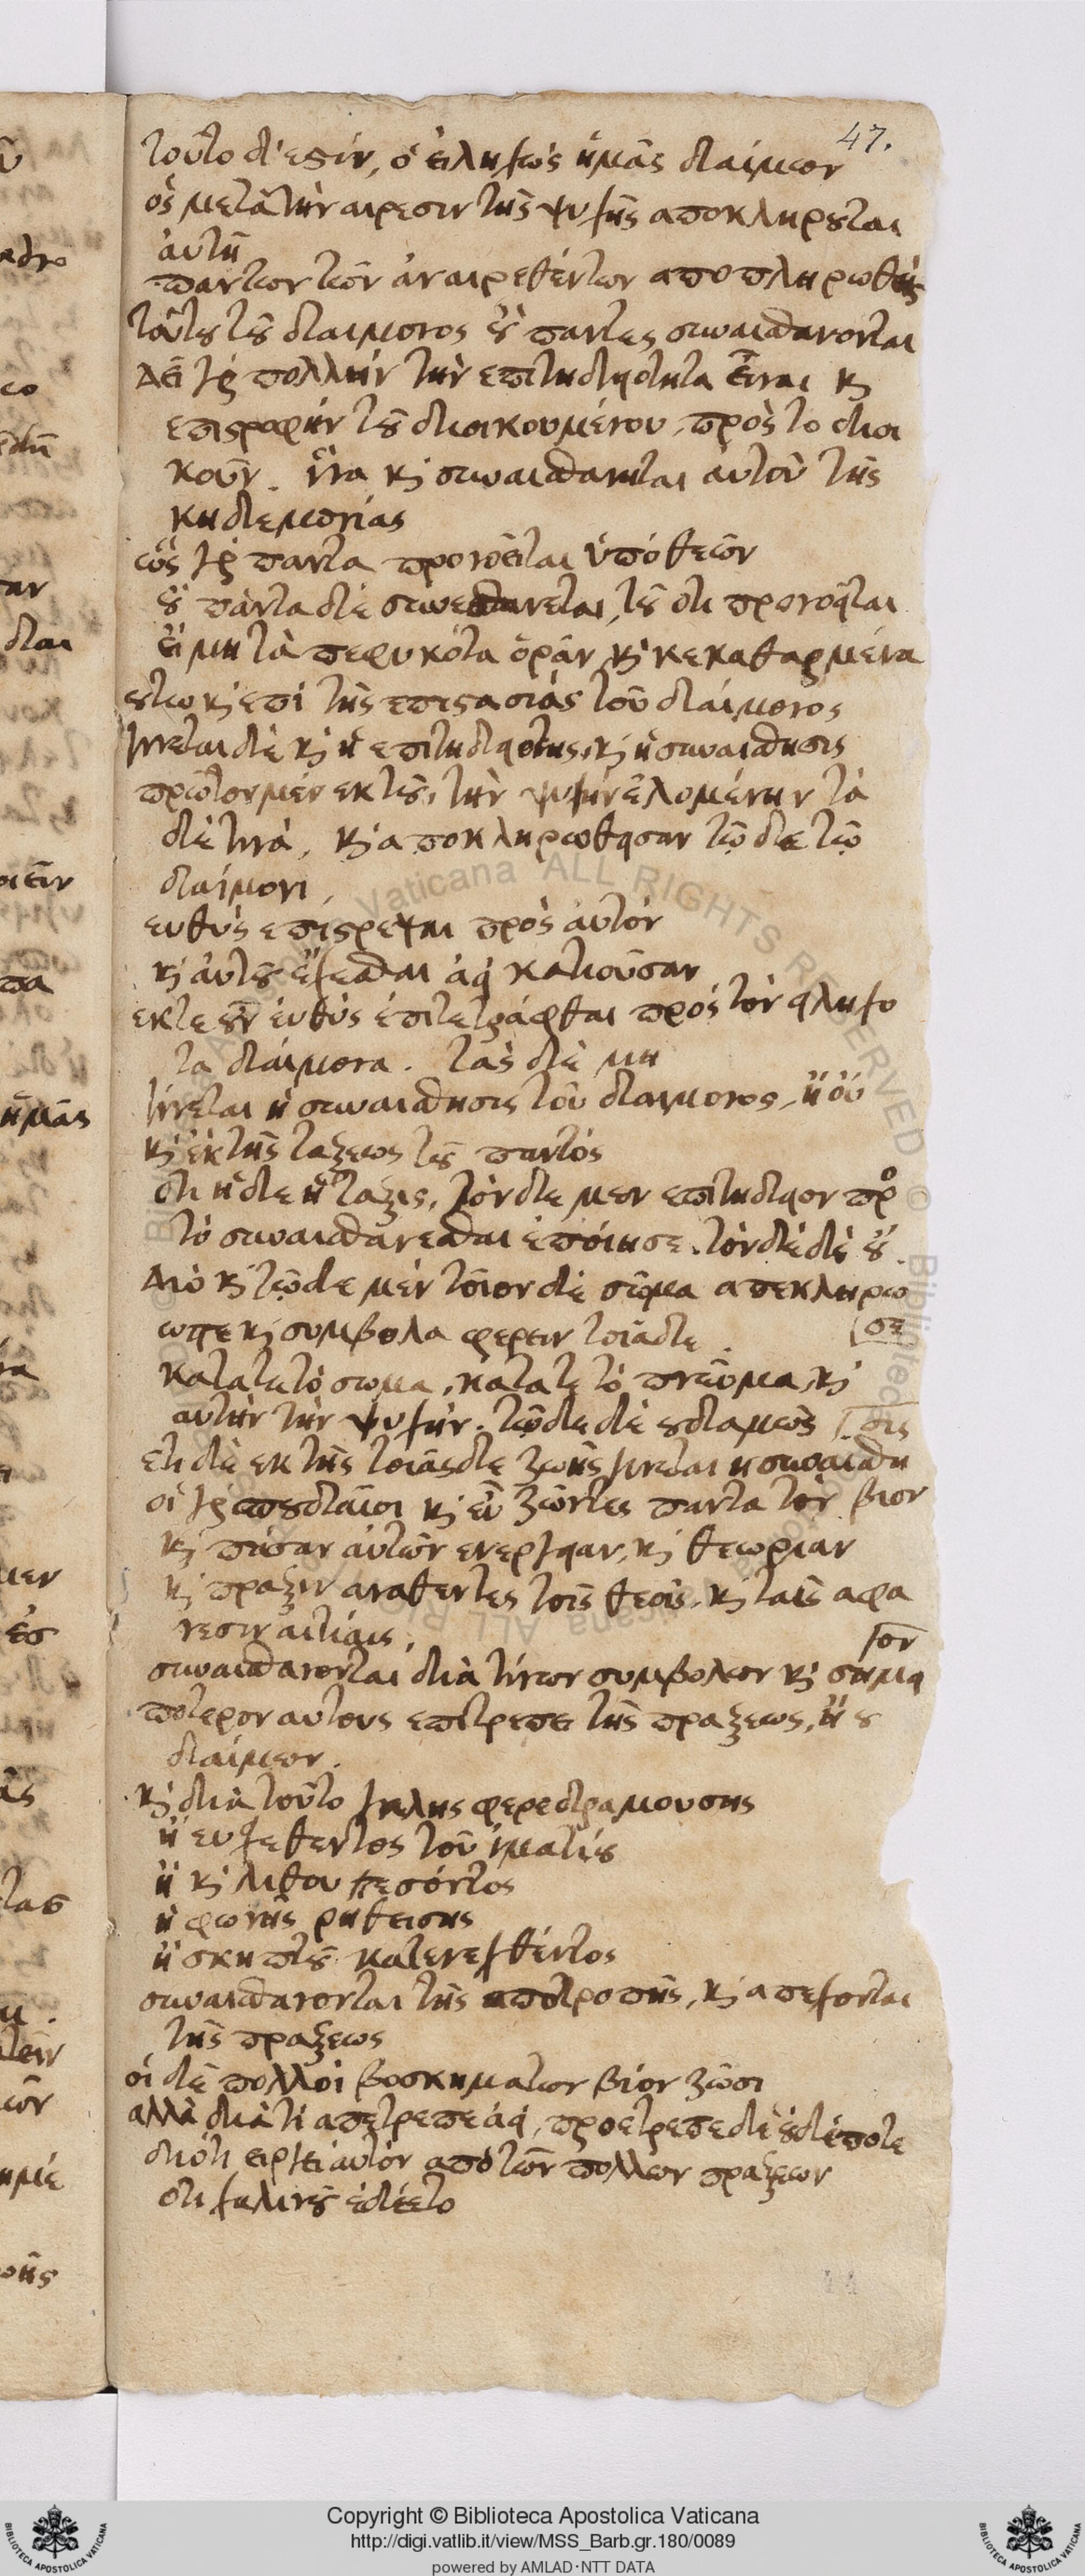 47.
τοῦτο δ' ἐστίν, ὁ εἰληχὼς ἡμᾶς δαίμων
ὃς μετὰ τὴν αιρεσιν τῆς ψυχῆς αποκληρουται
ἀυτῆ
παντων τῶν ἀναιρεθέντων αποπληρωθεὶς
τούτου τοῦ δαιμονος οὐ παντες συναισθανονται
Δεῖ γὰρ πολλὴν τὴν επιτηδειοτητα εἶναι και
επιστροφὴν τοῦ διοικουμένου, πρὸς το διοι
κοῦν. ἵνα καὶ συναισθανηται ἀυτοῦ τῆς
κηδεμονίας
ὡς γὰρ παντα προνοεῖται ὑπὸ θεῶν
οὐ πάντα δὲ συναισθανεται, τοῦ ὁτι προνοειται
εἰ μη τὰ πεφυκότα ὁρᾶν καὶ κεκαθαρμένα
ουτω καὶ επὶ τῆς επιστασιάς τοῦ δαίμονος
γινεται δὲ καὶ ἡ επιτηδειοτης, καὶ ἡ συναισθησις
πρῶτον μὲν εκ τοῦ, τὴν ψυχὴν ἑλομένην τὰ
δὲ τινά, καὶ αποκληρωθεισαν τῷ δε τῷ
δαίμονι,
ευθὺς επιστρεψαι πρὸς ἀυτόν
καὶ ἀυτοῦ ἔχεσθαι ἀεὶ κατιοῦσαν
εκτε οὖν ἐυθὺς ἐπιτετράφθαι πρὸς τὸν ειληχο
τα δαίμονα. τὰς δὲ μη
γίνεται ἡ συναισθησις τοῦ δαιμονος, ἢ οὐ
καὶ ἐκ τῆς ταξεως τοῦ παντός
ὁτι ἡδε ἡ ταξις, τόνδε μεν επιτηδειον πρὸ
τὸ συναισθανεσθαι ἐποίησε. τόνδε δὲ οὔ.
Διὸ καὶ τῷδε μὲν τοῖον δὲ σῶμα απεκληρω
σε
ωστε καὶ συμβολα φερειν τοιάδε
κατα τε τὸ σωμα, κατα τε τὸ πνεῦμα, καὶ
αυτὴν τὴν ψυχήν. τῷδε δὲ ουδαμῶς
σις
ετι δὲ εκ τῆς τοιάσδε ζωῆς γινεται η συναισθη
οἱ γὰρ σπουδαῖοι καὶ εὖ ζῶντες παντα τὸν βιον
καὶ πᾶσαν ἀυτῶν ενεργειαν, καὶ θεωριαν
καὶ πραξιν αναθεντες τοῖς θεοῖς, καὶ ταῖς αφα
νεσιν αἰτίαις,
ον
συναισθανονται διὰ τίνων συμβολων καὶ σημει
πότερον αυτους επιτρεπει τῆς πραξεως, ἢ ου
δαίμων.
καὶ διὰ τοῦτο γαλῆς φερε δραμουσης
ἢ ευχεθεντος τοῦ ἱματίου
ἢ καὶ λιθου πεσόντος
ἢ φωνῆς ρηθεισης
ἢ σκηπτοῦ κατενεχθέντος
συναισθανονται τῆς αποτροπῆς, καὶ απεχονται
τῆς πραξεως
οἱ δὲ πολλοὶ βοσκηματων βίον ζῶσι
αλλὰ διὰ τί απετρεπε ἀεὶ, προετρεπε δὲ οὐδέποτε
διότι ειργει ἀυτὸν απὸ τῶν πολλων πραξεων
ὁτι χαλινοῦ ἐδέετο